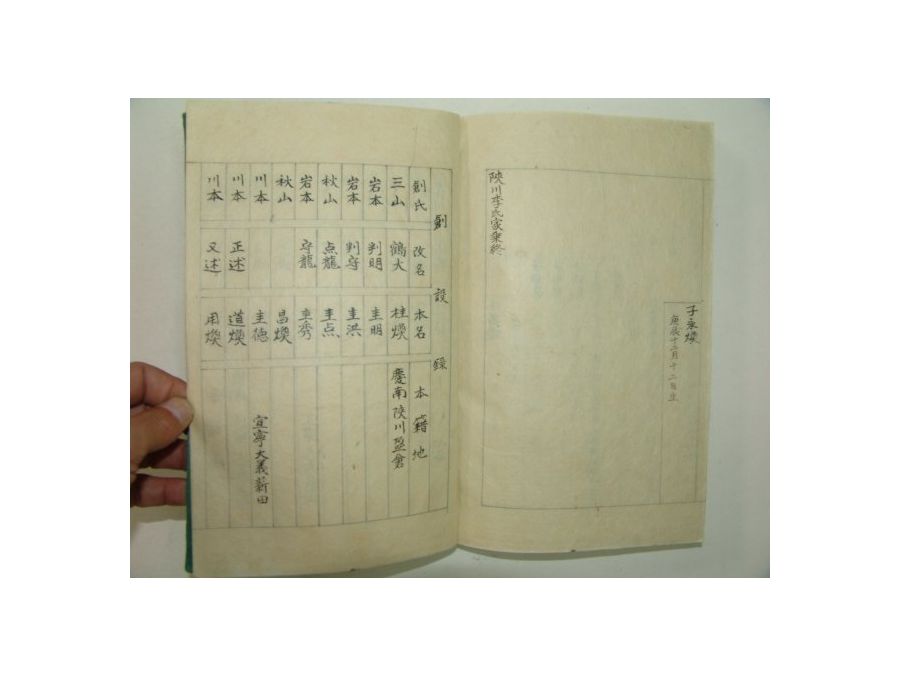 子永煥
庚辰十二月十二日生
陜川李氏家乘終
創設錄
創氏 改名 本名 本籍地
三山 鶴大 桂煥 慶南陜川盈倉
岩本 判明 圭明
岩本 判守 圭洪
秋山 点龍 圭点
岩本 守龍 圭秀
秋山 昌煥
川本 圭德 宜寧大義新田
川本 正述 道煥
川本 又述 用煥